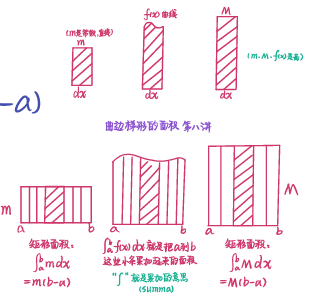 f(x)曲线
M
(m是常数,直线)
m
(m.M.f(x)是高)
dx
dx
dx
-a)
曲边梯形的面积 第八讲
m
M
a b
a b
a b
矩形面积:
∫ₐᵇ m dx
=m(b-a)
∫ₐᵇ f(x)dx就是把a到b
这些小条累加起来的面积
"∫"就是累加的意思
(summa)
矩形面积:
∫ₐᵇ M dx
=M(b-a)